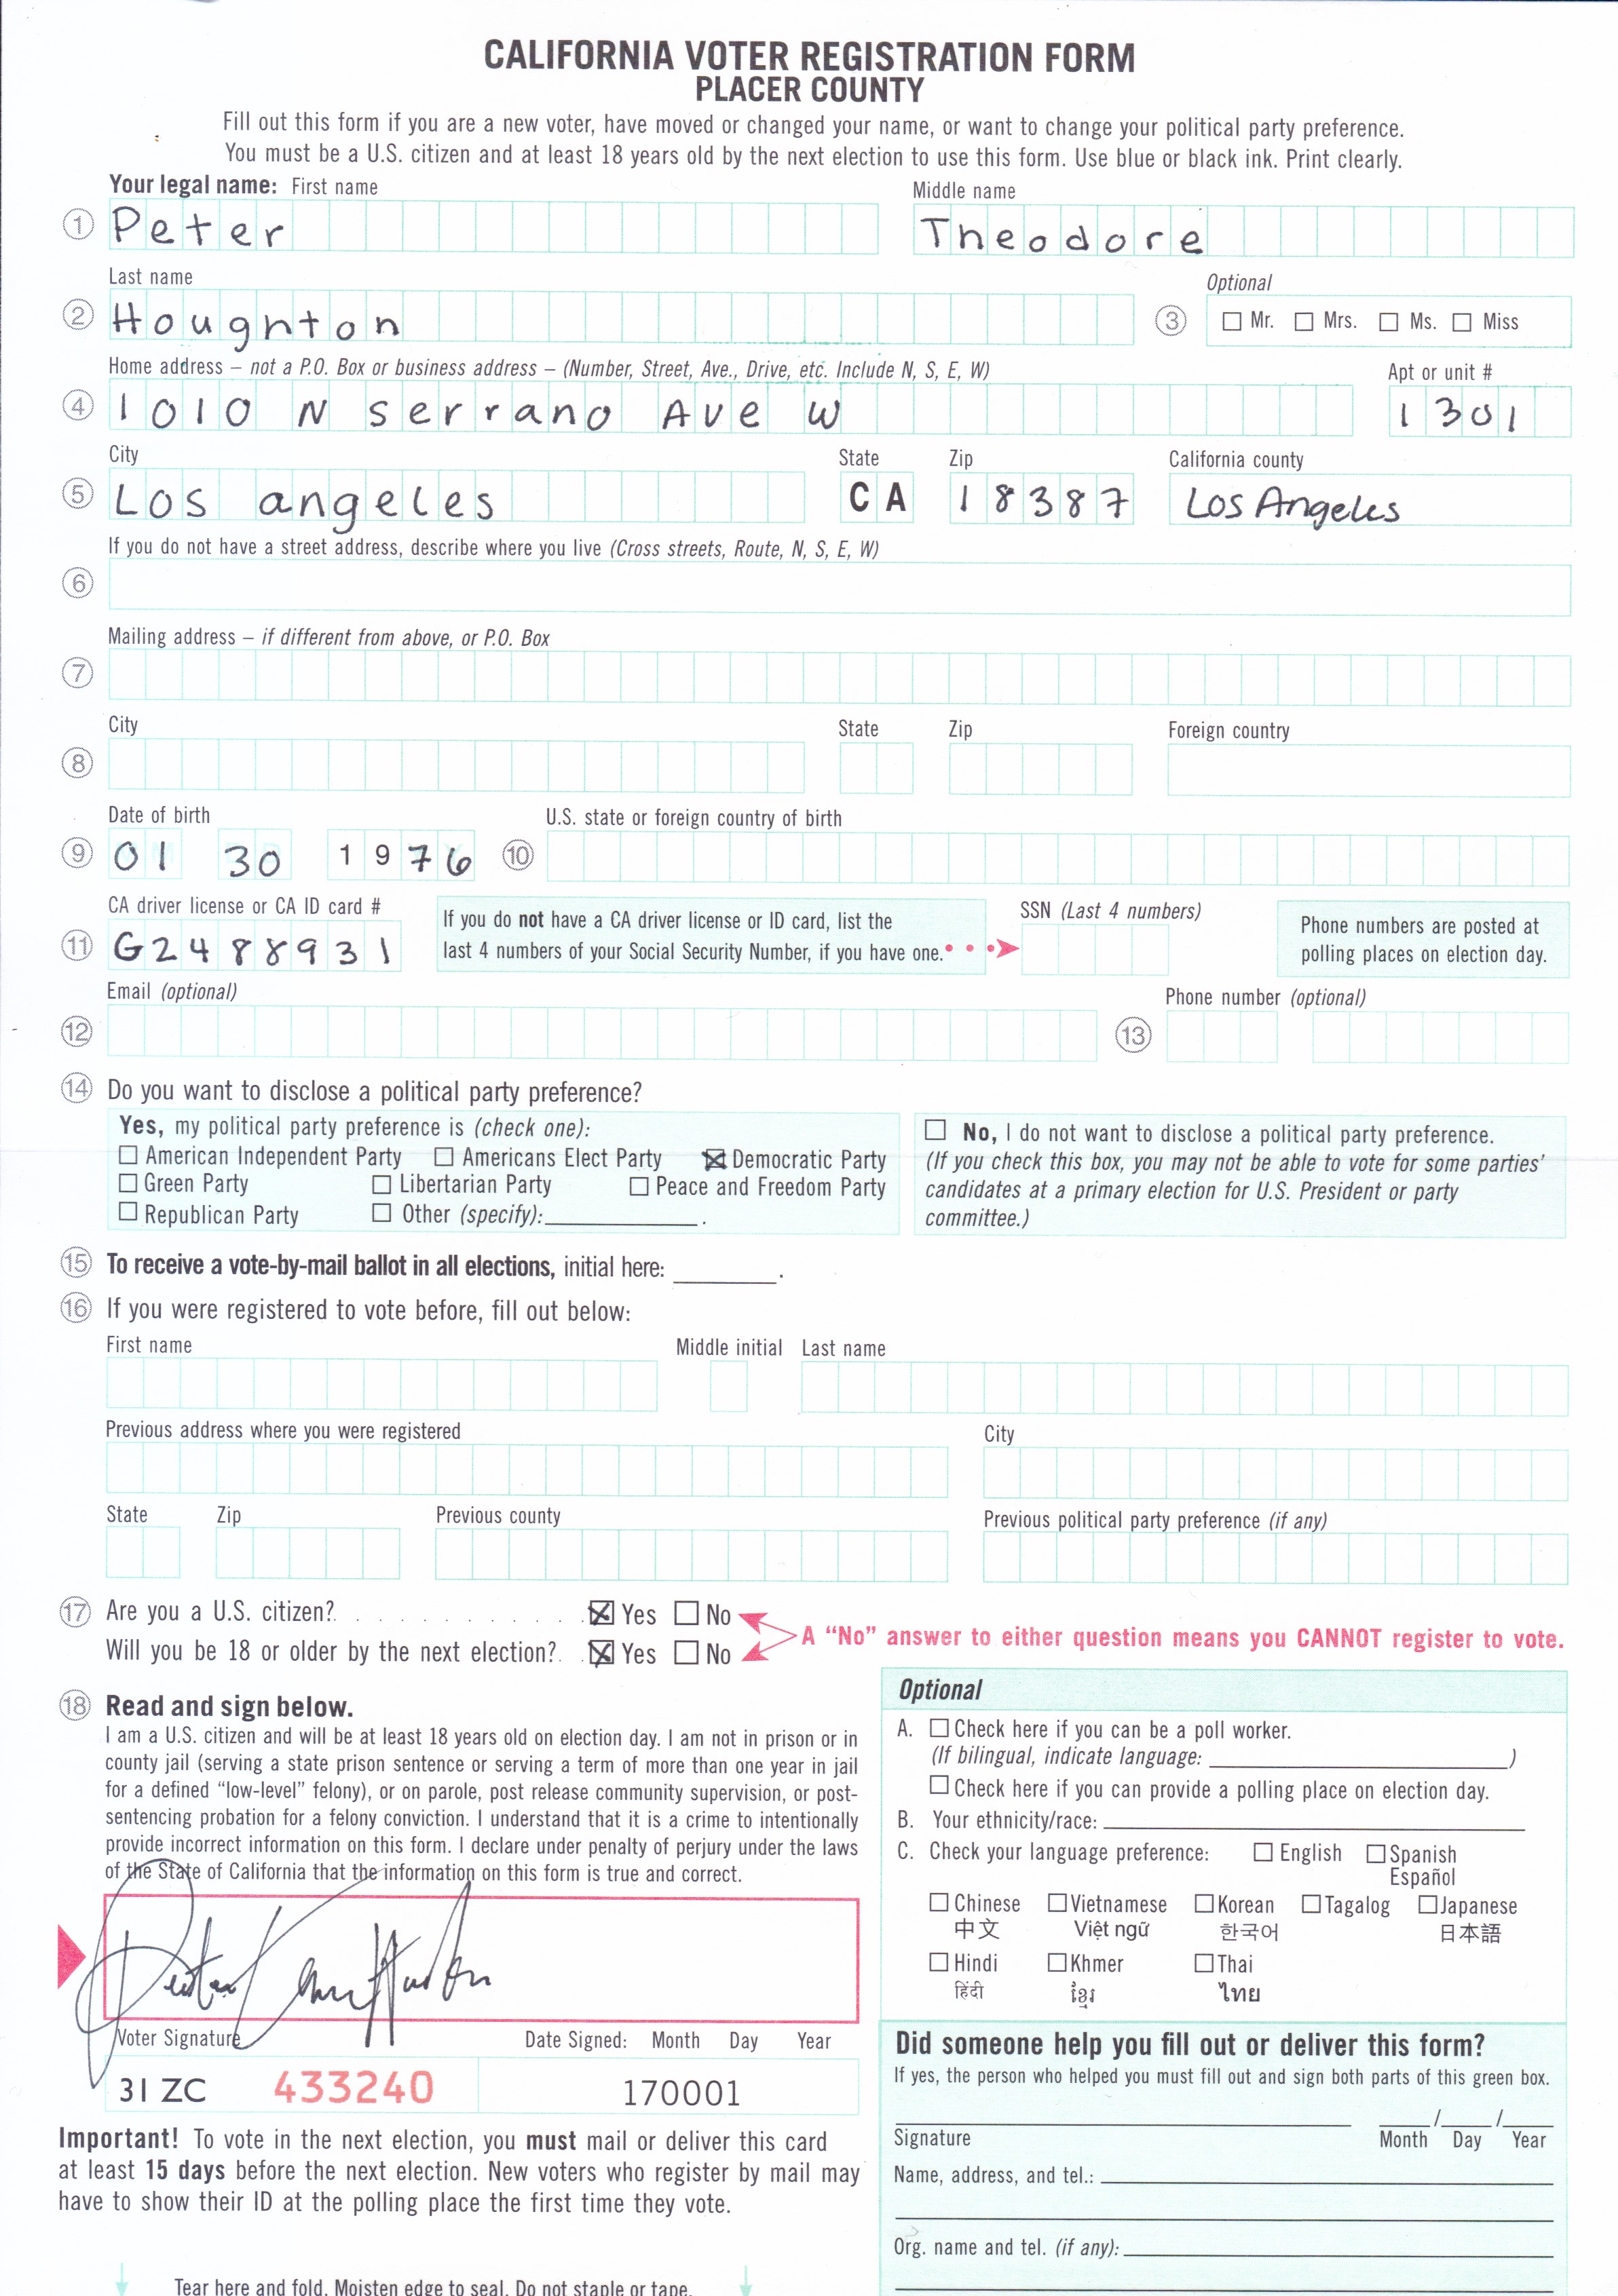 CALIFORNIA VOTER REGISTRATION FORM
PLACER COUNTY
Fill out this form if you are a new voter, have moved or changed your name, or want to change your political party preference.
You must be a U.S. citizen and at least 18 years old by the next election to use this form. Use blue or black ink. Print clearly.
Your legal name: First name Middle name
1 Peter Theodore
Last name Optional
2 Houghton 3 Mr. Mrs. Ms. Miss
Home address – not a P.O. Box or business address – (Number, Street, Ave., Drive, etc. Include N, S, E, W) Apt or unit #
4 1010 N serrano Ave W 1301
City State Zip California county
5 Los angeles CA 18387 Los Angeles
If you do not have a street address, describe where you live (Cross streets, Route, N, S, E, W)
6
Mailing address – if different from above, or P.O. Box
7
City State Zip Foreign country
8
Date of birth U.S. state or foreign country of birth
9 01 30 1976 10
CA driver license or CA ID card # If you do not have a CA driver license or ID card, list the SSN (Last 4 numbers) Phone numbers are posted at
11 G2488931 last 4 numbers of your Social Security Number, if you have one. polling places on election day.
Email (optional) Phone number (optional)
12 13
14 Do you want to disclose a political party preference?
Yes, my political party preference is (check one):
American Independent Party Americans Elect Party Democratic Party
Green Party Libertarian Party Peace and Freedom Party
Republican Party Other (specify): .
No, I do not want to disclose a political party preference.
(If you check this box, you may not be able to vote for some parties'
candidates at a primary election for U.S. President or party
committee.)
15 To receive a vote-by-mail ballot in all elections, initial here: .
16 If you were registered to vote before, fill out below:
First name Middle initial Last name
Previous address where you were registered City
State Zip Previous county Previous political party preference (if any)
17 Are you a U.S. citizen? Yes No
Will you be 18 or older by the next election? Yes No
A "No" answer to either question means you CANNOT register to vote.
18 Read and sign below.
I am a U.S. citizen and will be at least 18 years old on election day. I am not in prison or in
county jail (serving a state prison sentence or serving a term of more than one year in jail
for a defined "low-level" felony), or on parole, post release community supervision, or post-
sentencing probation for a felony conviction. I understand that it is a crime to intentionally
provide incorrect information on this form. I declare under penalty of perjury under the laws
of the State of California that the information on this form is true and correct.
Voter Signature Date Signed: Month Day Year
31 ZC 433240 170001
Important! To vote in the next election, you must mail or deliver this card
at least 15 days before the next election. New voters who register by mail may
have to show their ID at the polling place the first time they vote.
Optional
A. Check here if you can be a poll worker.
(If bilingual, indicate language: )
Check here if you can provide a polling place on election day.
B. Your ethnicity/race:
C. Check your language preference: English Spanish
Español
Chinese Vietnamese Korean Tagalog Japanese
中文 Việt ngữ 한국어 日本語
Hindi Khmer Thai
हिंदी ខ្មែរ ไทย
Did someone help you fill out or deliver this form?
If yes, the person who helped you must fill out and sign both parts of this green box.
/ /
Signature Month Day Year
Name, address, and tel.:
Org. name and tel. (if any):
Tear here and fold. Moisten edge to seal. Do not staple or tape.